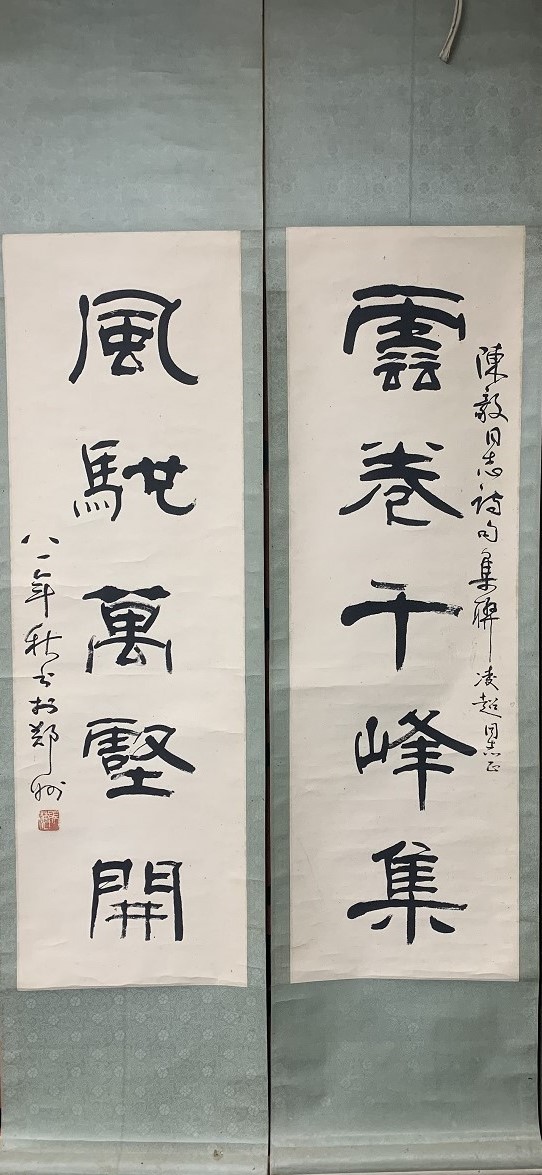 陳毅同志詩句集聯 凌超同志正
雲卷千峰集
風馳萬壑開
八一年秋書於鄭州